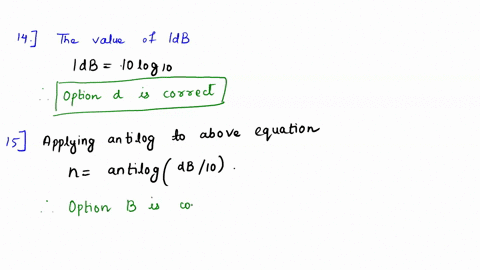 14.] The value of 1dB
1dB = 10 log 10
∴ Option d is correct
15] Applying antilog to above equation
n = antilog ( dB /10 ) .
∴ Option B is co